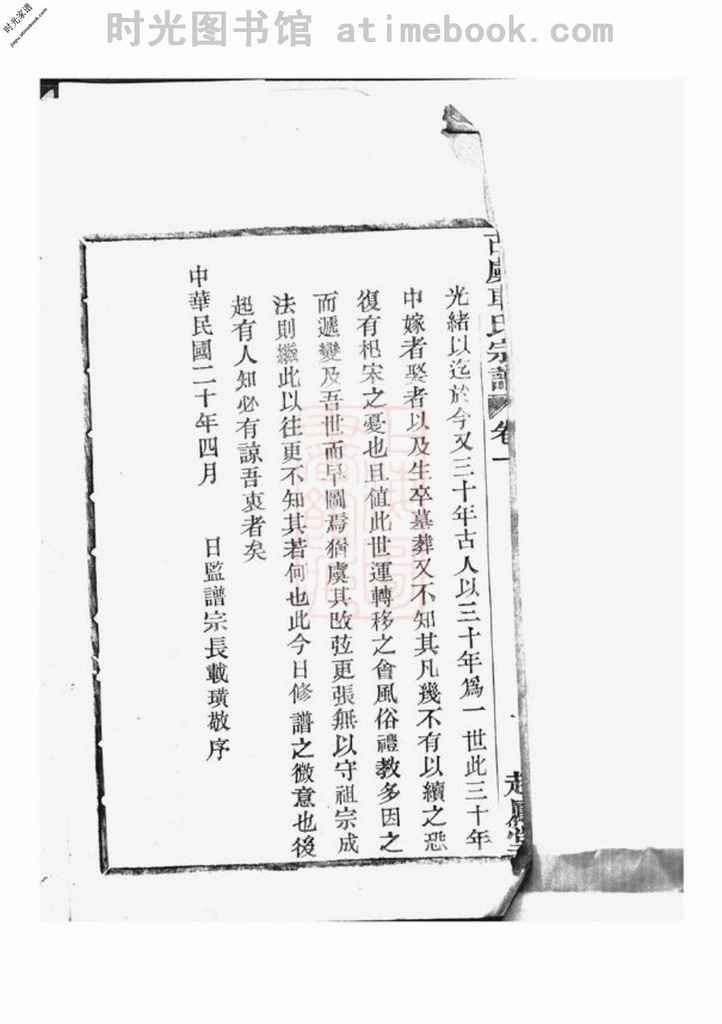 时光图书馆 atimebook.com
时光家谱
光緒以迄於今又三十年古人以三十年為一世此三十年
中嫁者娶者以及生卒墓葬又不知其凡幾不有以續之恐
復有杞宋之憂也且值此世運轉移之會風俗禮教多因之
而遞變及吾世而早圖焉猶虞其改弦更張無以守祖宗成
法則繼此以往更不知其若何也此今日修譜之微意也後
起有人知必有諒吾衷者矣
中華民國二十年四月 日監譜宗長載璜敬序
古虞 氏宗譜 卷一